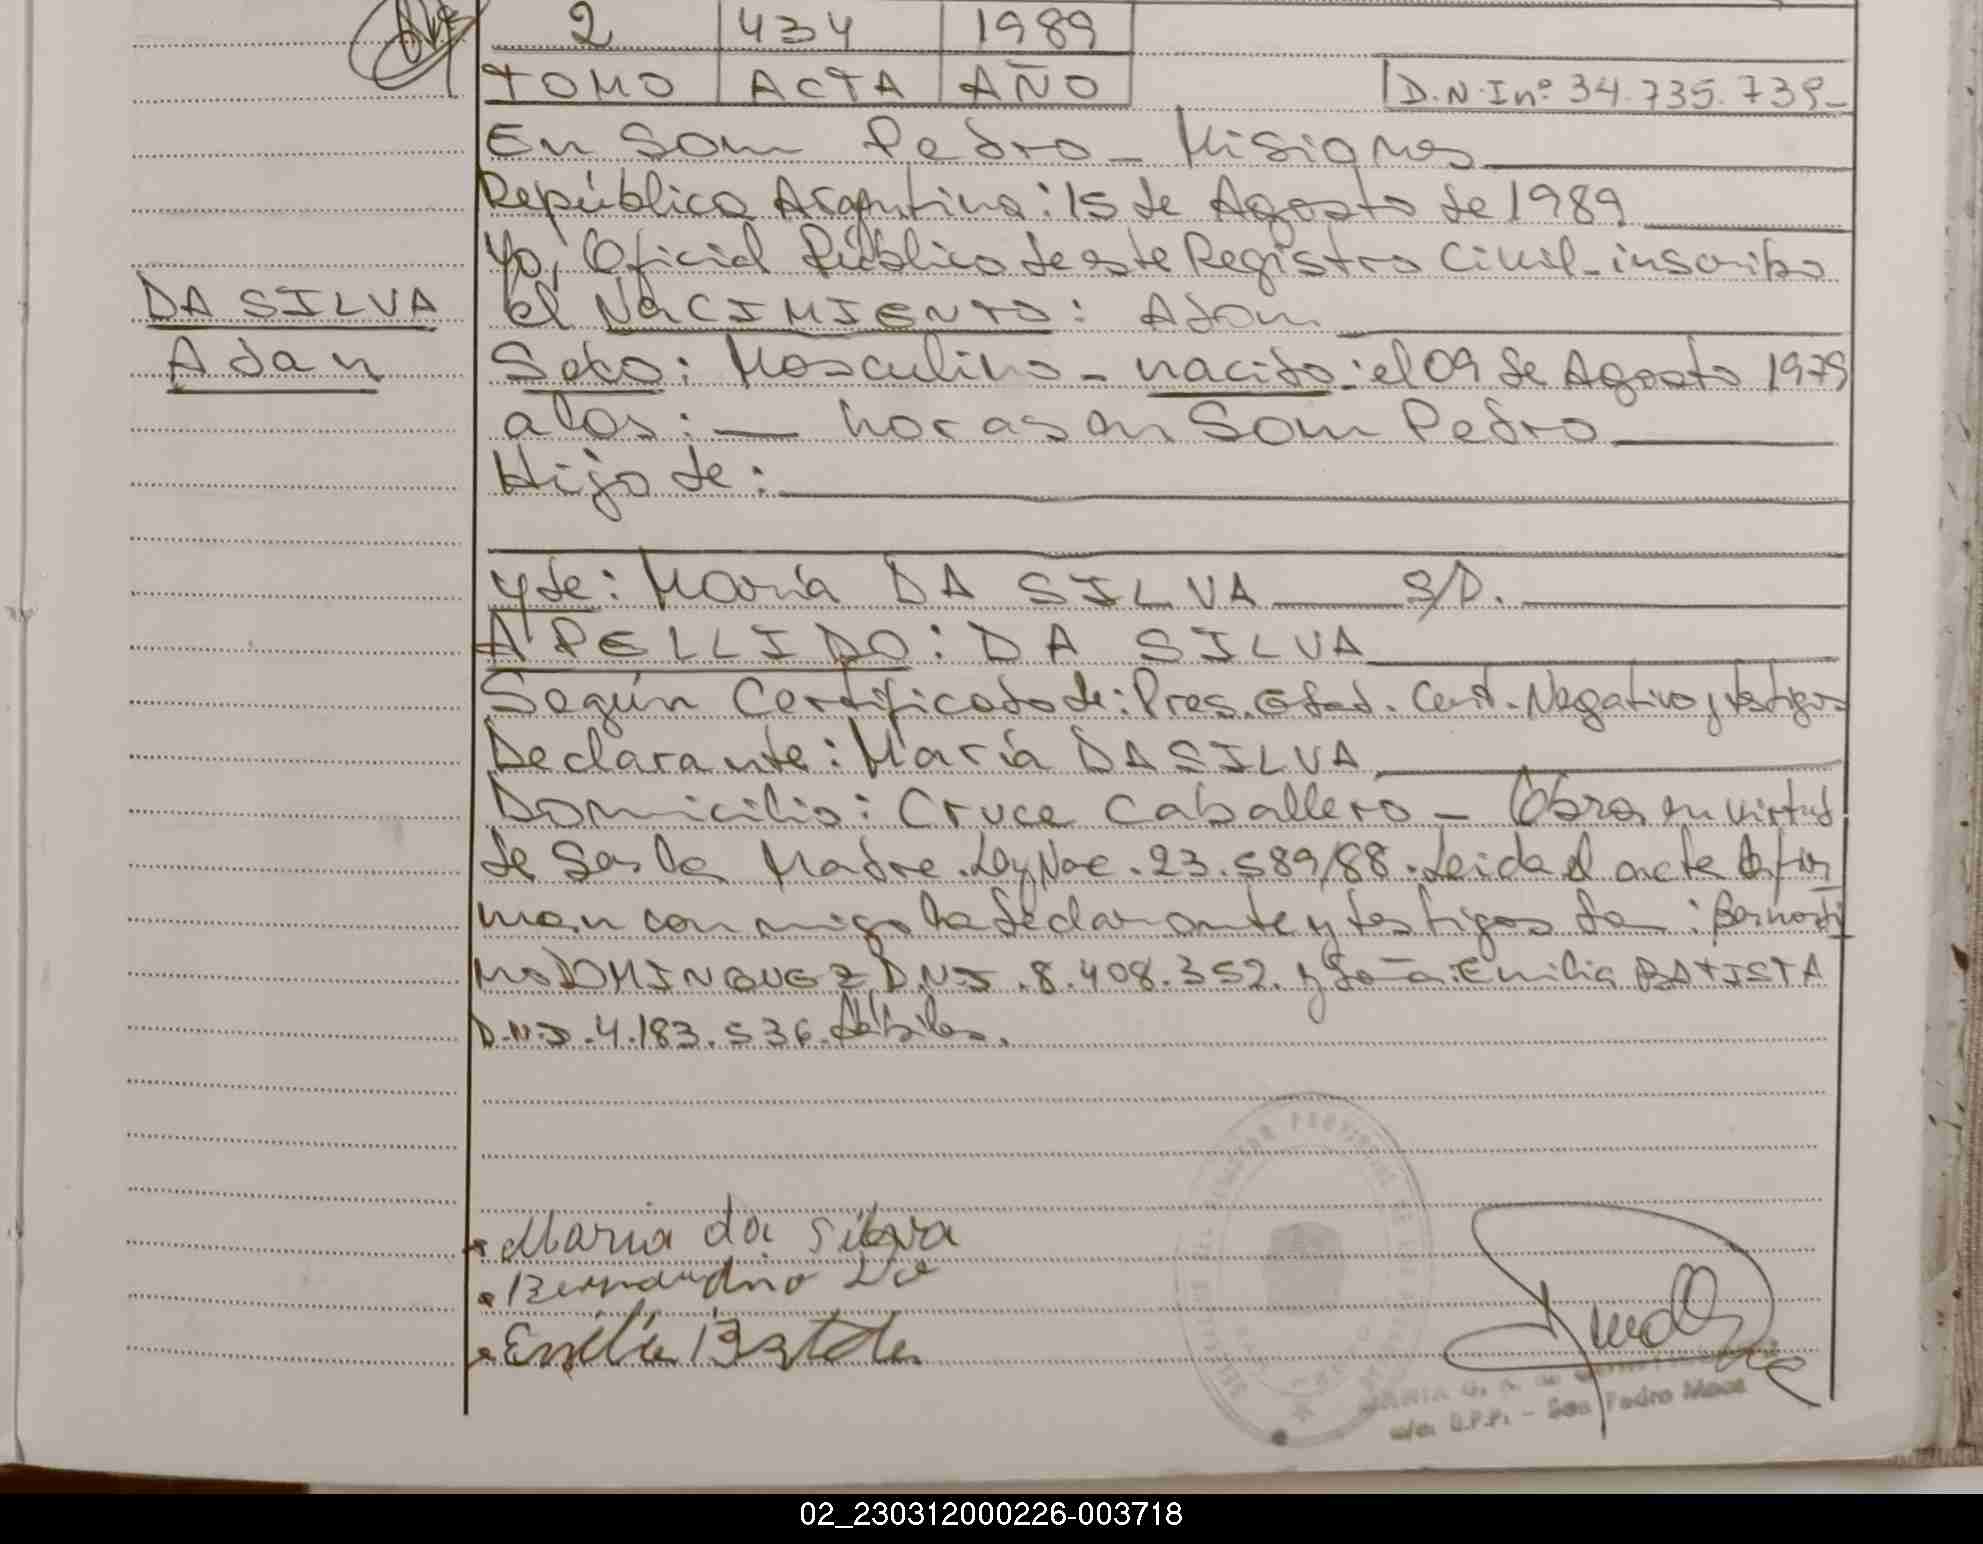 2 434 1989
TOMO ACTA AÑO
D.N.I nº 34.735.739-
En San Pedro - Misiones
República Argentina: 15 de Agosto de 1989
Yo, Oficial Público de este Registro Civil - inscribo
DA SILVA
Adan
el NACIMIENTO: Adan
Sexo: Masculino - nacido: el 09 de Agosto 1979
a las: — horas en San Pedro
Hijo de:
y de: María DA SILVA S/D.
APELLIDO: DA SILVA
Según Certificado de: Pres. Edad. Cert. Negativo y testigos
Declarante: María DA SILVA
Domicilio: Cruce Caballero - Obra en virtud
de ser la Madre. Ley Nac. 23.589/88. Leida el acta la fir
man con migo la declarante y testigos don: Bernardi
no DOMINGUEZ D.N.I. 8.408.352. y doña: Emilia BATISTA
D.N.I. 4.183.536. hábiles.
Maria da silva
Bernardino Do
Emilia Batista
San Pedro Mnes
02_230312000226-003718